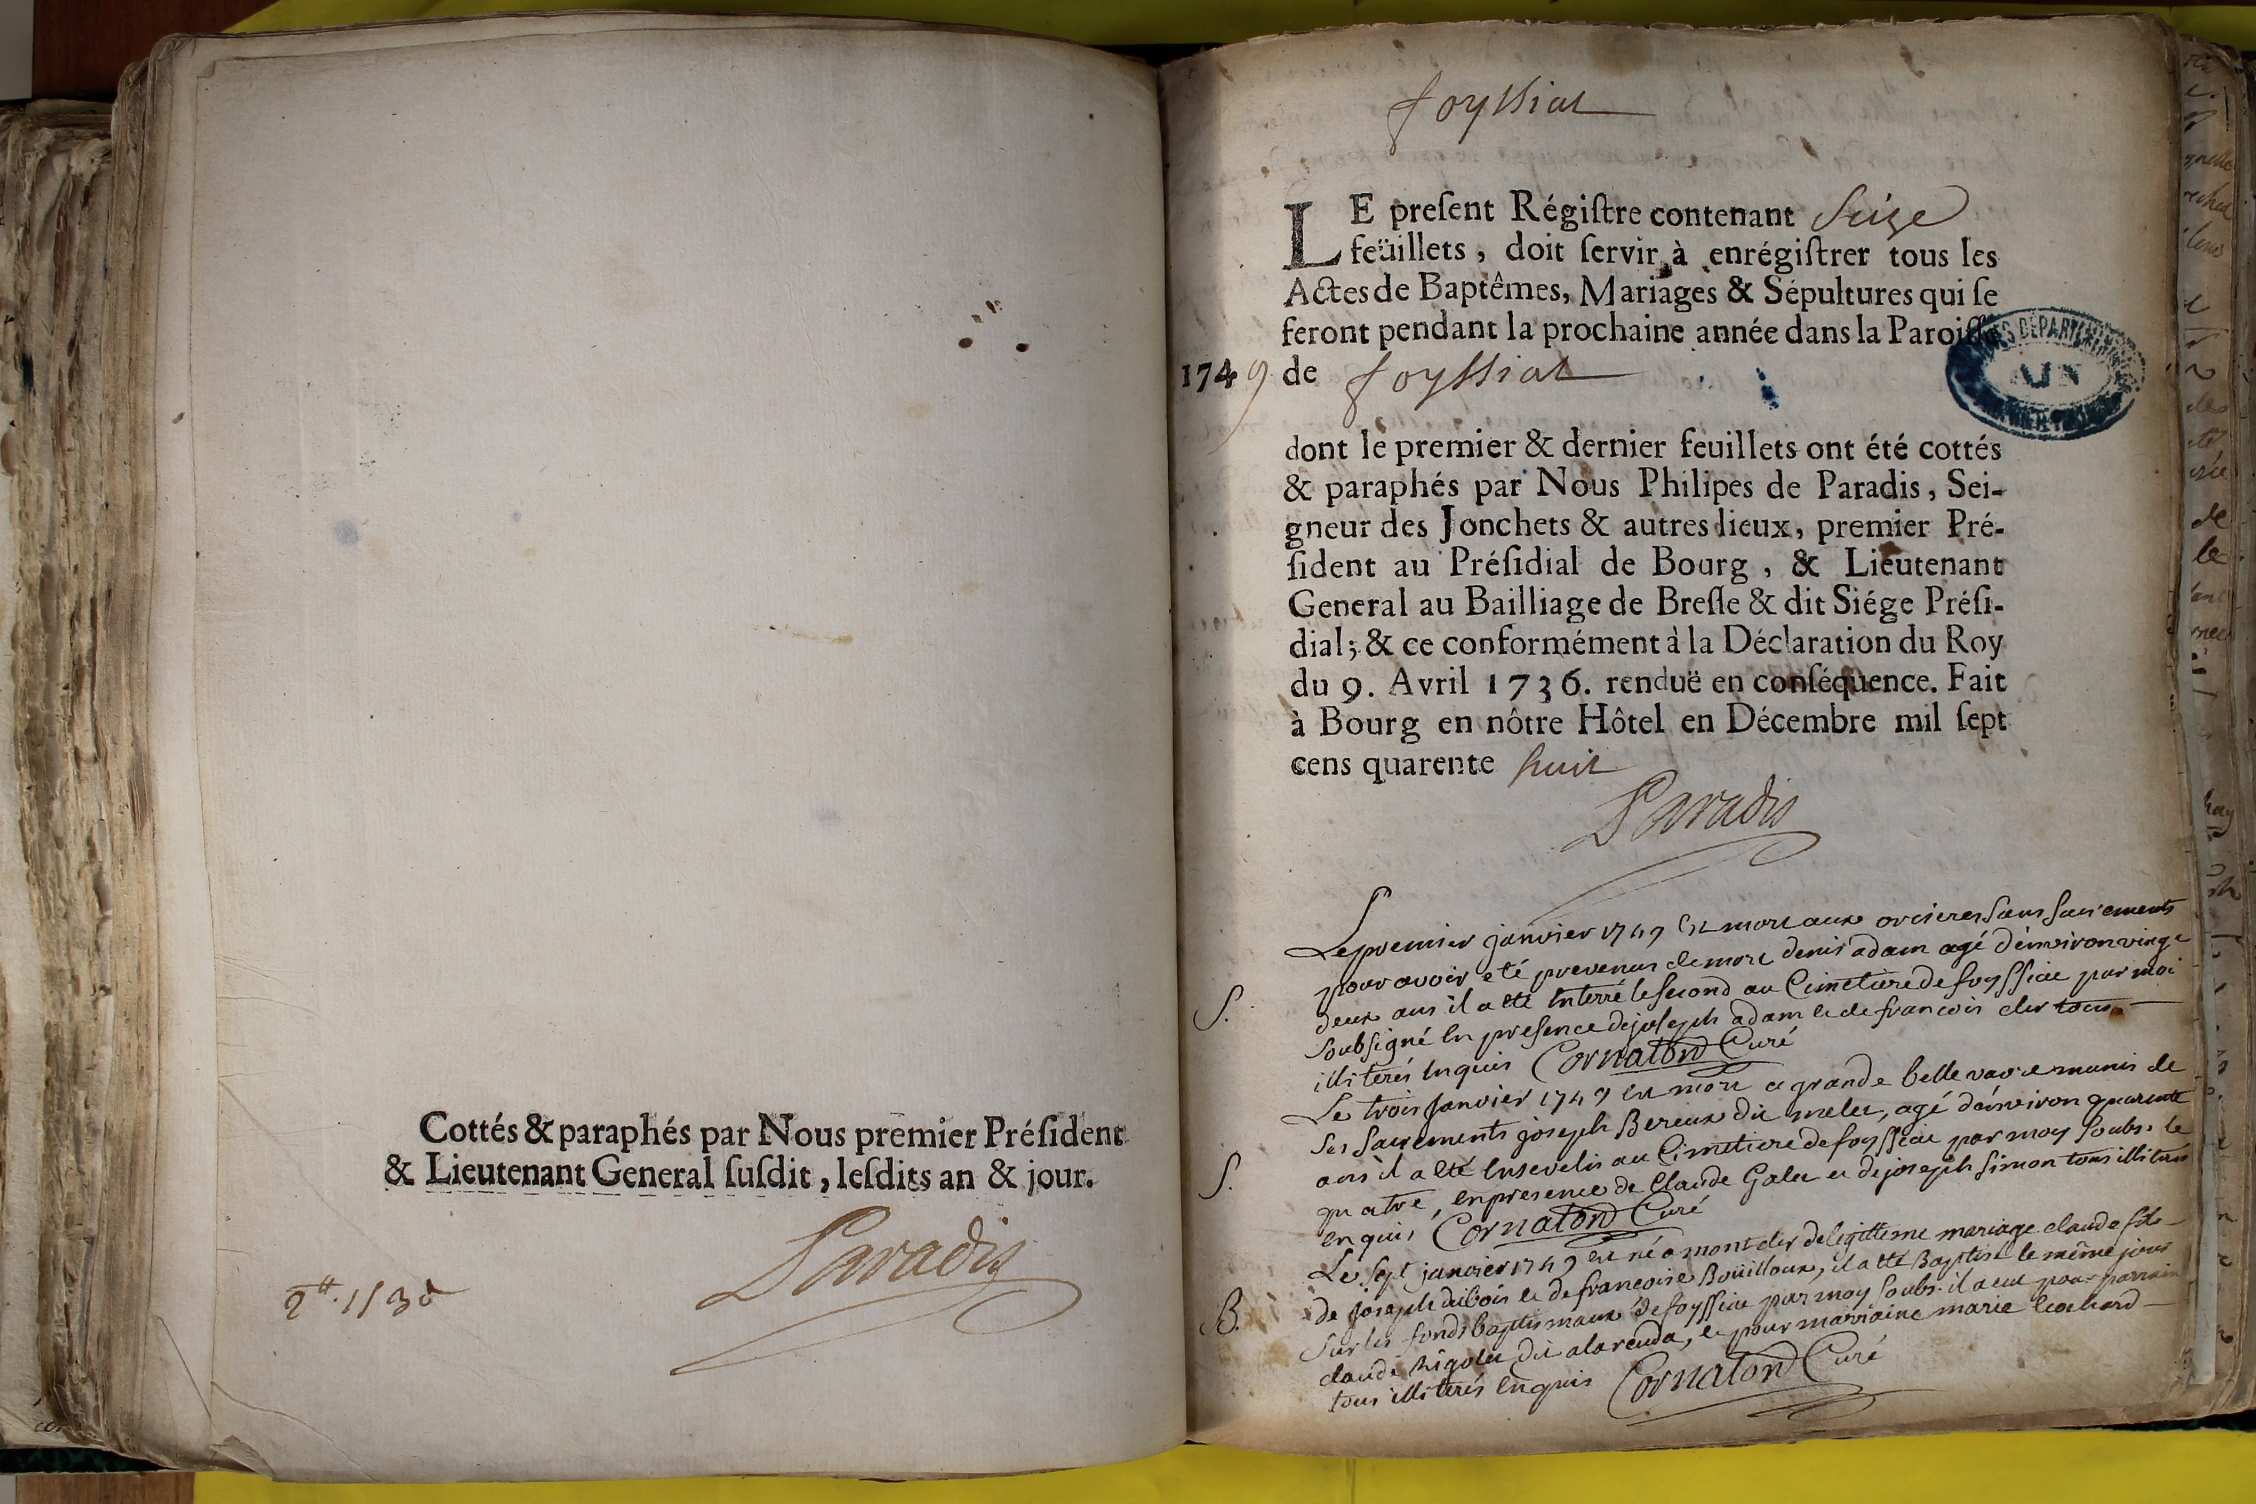 Cottés & paraphés par Nous premier Président
& Lieutenant General susdit, lesdits an & jour.
Paradis
foyssiat
LE present Régistre contenant Seize
feüillets, doit servir à enrégistrer tous les
Actes de Baptêmes, Mariages & Sépultures qui se
feront pendant la prochaine année dans la Paroisse
1749 de foyssiat
dont le premier & dernier feuillets ont été cottés
& paraphés par Nous Philipes de Paradis, Sei-
gneur des Jonchets & autres lieux, premier Pré-
sident au Présidial de Bourg, & Lieutenant
General au Bailliage de Bresse & dit Siége Prési-
dial; & ce conformément à la Déclaration du Roy
du 9. Avril 1736. renduë en conséquence. Fait
à Bourg en nôtre Hôtel en Décembre mil sept
cens quarente huit
Paradis
AIN
Le premier janvier 1749 est mort aux orcieres sans sacrements
pour avoir eté prevenus de mort denis adam agé d'environ vingt
deux ans il a eté Enterré le second au Cimetiere de foyssiat par moi
S. soubsigné En presence de joseph adam et de francois cler tous
illiterés Enquis Cornaton Curé
Le trois Janvier 1749 est mort a grande belle vavre munis de
ses sacrements joseph Bereux dit melet, agé d'environ quarente
ans il a eté Ensevelis au Cimetiere de foyssiat par moy soubs. le
S. quatre, En presence de Claude Galet et de joseph simon tous illiterés
Enquis Cornaton Curé
Le sept janvier 1749 est né a montcler de legitteme mariage claude fils
de joseph dubois et de francoise Boüilloux, il a eté Baptisé le même jour
B. sur les fonds baptismaux de foyssiat par moy soubs. il a eut pour parrain
claude Rigolet dit alarenda, et pour marraine marie
tous illiterés Enquis Cornaton Curé